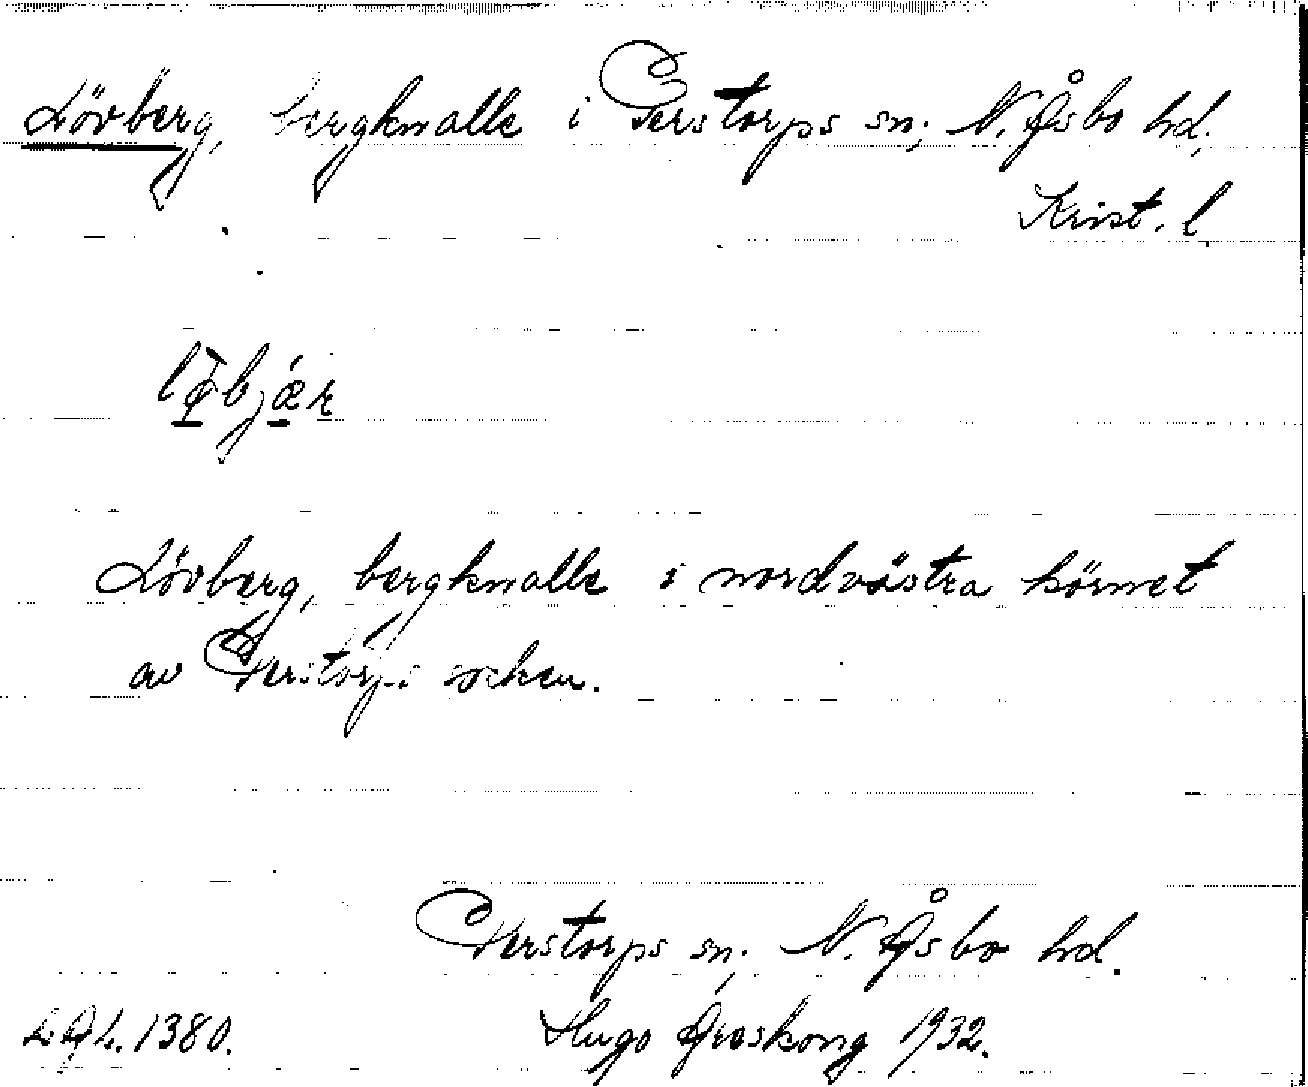 Lövberg, bergknalle i Perstorps sn; N. Åsbo hd,
Krist. l
Lövberg, bergknalle i nordvästra hörnet
av Perstorps socken.
Perstorps sn; N. Åsbo hd.
Hugo Areskoug 1932.
L.A.L. 1380.